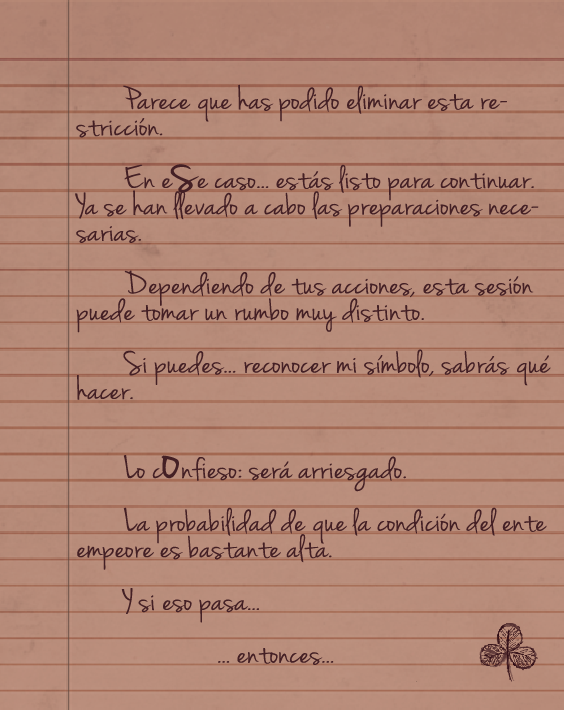 Parece que has podido eliminar esta re-
stricción.
En eSe caso... estás listo para continuar.
Ya se han llevado a cabo las preparaciones nece-
sarias.
Dependiendo de tus acciones, esta sesión
puede tomar un rumbo muy distinto.
Si puedes... reconocer mi símbolo, sabrás qué
hacer.
Lo cOnfieso: será arriesgado.
La probabilidad de que la condición del ente
empeore es bastante alta.
Y si eso pasa...
... entonces...